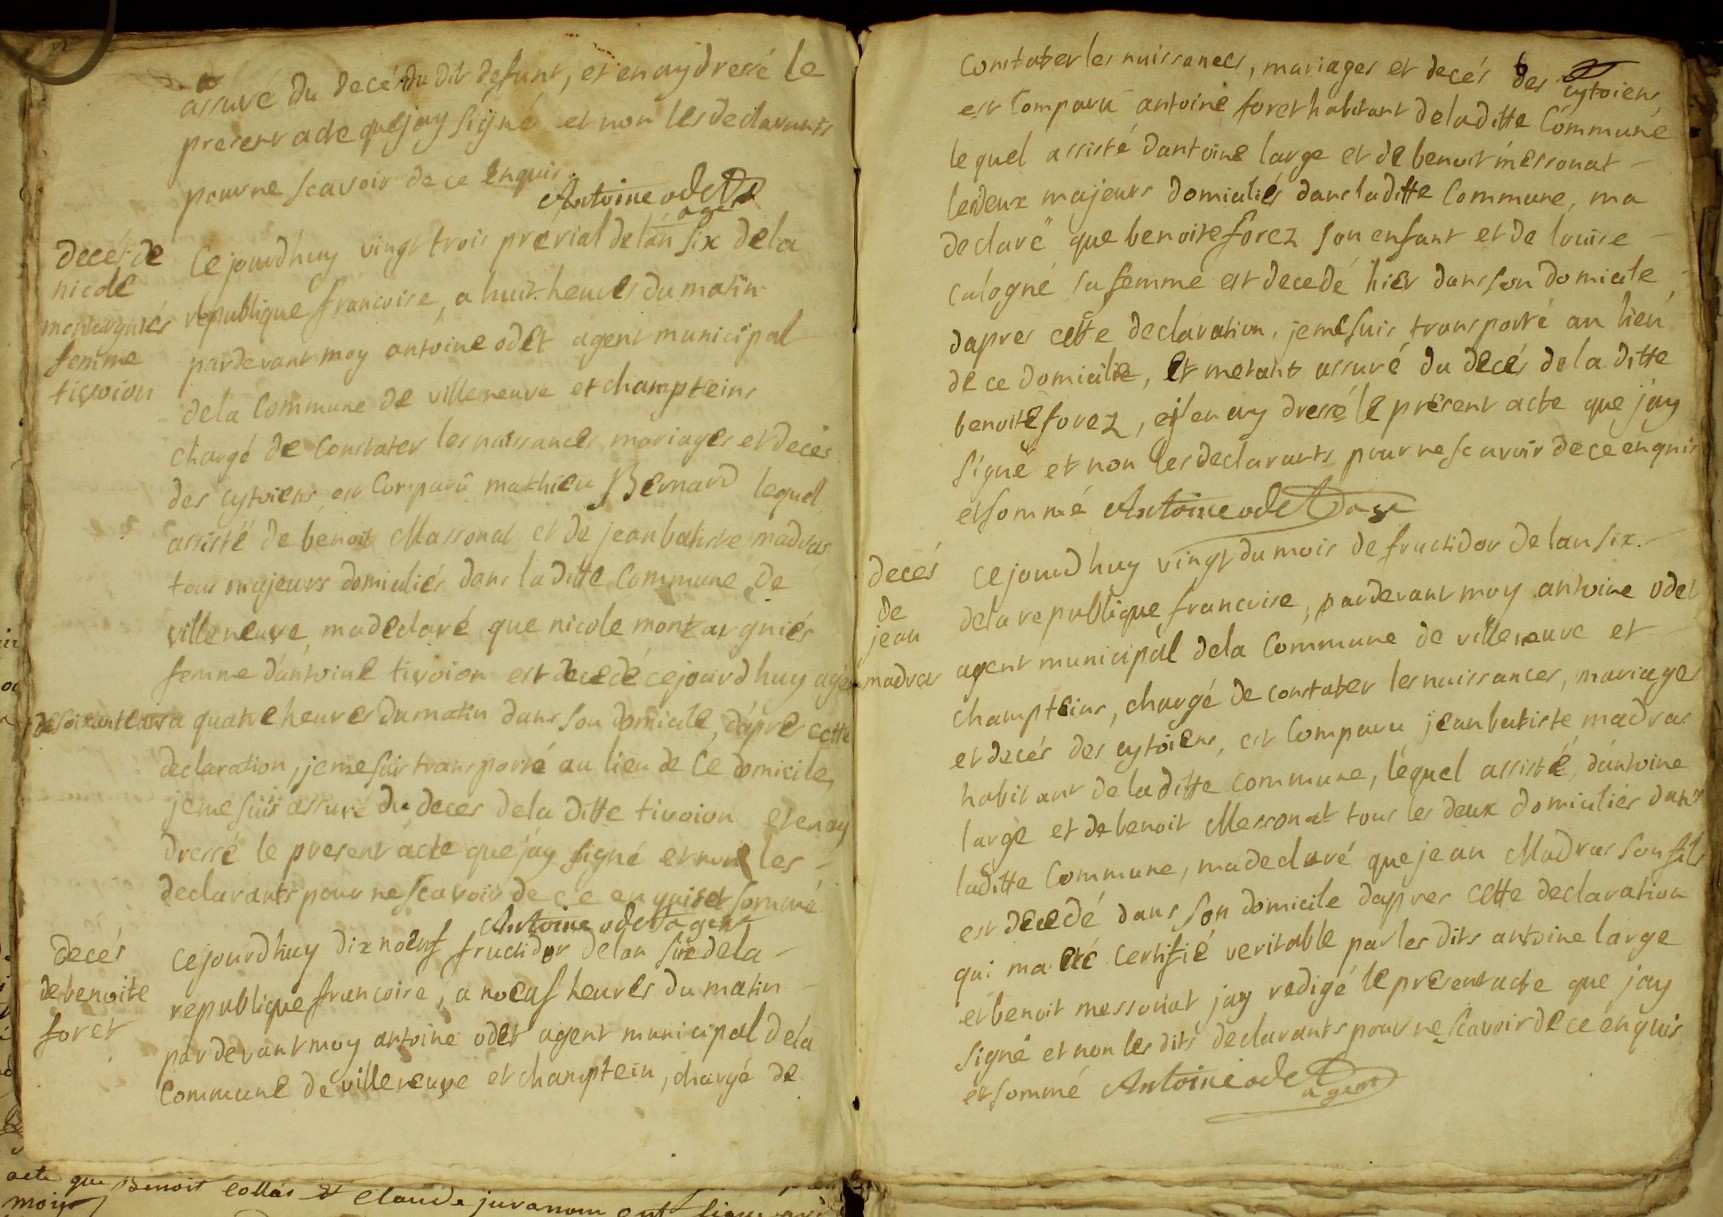 assuré du decé du dit defunt, et en ay dressé le
present acte que jay signé et non les declarants
pour ne scavoir de ce enquis.
Antoine odet
agent
deces de
nicole
montargniés
femme
tivoion
Cejourdhuy vingt trois prerial de lan six dela
republique francoise, a huit heures du matin
pardevant moy antoine odet agent municipal
dela Commune de villeneuve et champteins
chargé de Constater les naissances mariages et deces
des cytoiens est Comparü mathieu Bernard lequel
assisté de bénoit Massonat et de jean batiste madras
tous majeurs domiciliés dans la ditte Commune de
villeneuve, ma declaré que nicole montargniés
femme dantoine tivoion est decedé cejourdhuy agée
de soixante ans a quatre heures du matin dans son domicile, dapres cette
declaration, je me suis transporté au lieu de Ce domicile,
je me suis assuré du deces dela ditte tivoion et en ay
dressé le present acte que jay signé et non les
declarants pour ne scavoir de ce enquis et sommé
Antoine odet agent
decés
de benoite
foret
Cejourdhuy dix noeuf fructidor de lan six dela
republique francoise, a noeuf heures du matin
pardevant moy antoine odet agent municipal dela
Commune de villeneuve et champtein, chargé de
Constater les naissances, mariages et decés des cytoiens
est Comparu antoine foret habitant dela ditte Commune
le quel assisté dantoine large et de benoit messonat
les deux majeurs domiciliés dans la ditte Commune, ma
declaré que benoite forez son enfant et de louise
calogné sa femme est decedé hier dans son domicile
dapres cette declaration, je me suis transporté au lieu
de ce domicile, et metant assuré du decés dela ditte
benoite forez, en ay dressé le present acte que jay
signé et non les declarants pour ne scavoir de ce enquis
et sommé Antoine odet age
decés
de
jean
madras
Cejourdhuy vingt du mois de fructidor de lan six
dela republique francoise, pardevant moy antoine odet
agent municipal dela Commune de villeneuve et
champteins, chargé de constater les naissances, mariages
et decés des cytoiens, est Comparu jean batiste madras
habitant dela ditte commune, lequel assisté, dantoine
large et de benoit Messonat tous les deux domiciliés dans
laditte Commune, ma declaré que jean Madras son fils
est decedé dans son domicile dapres cette declaration
qui ma eté certifié veritable par les dits antoine large
et benoit messonat jay redigé le present acte que jay
signé et non les dits declarants pour ne scavoir de ce enquis
et sommé Antoine odet
agent
acte que Benoit Collas et Claude juvanom ont
moiy